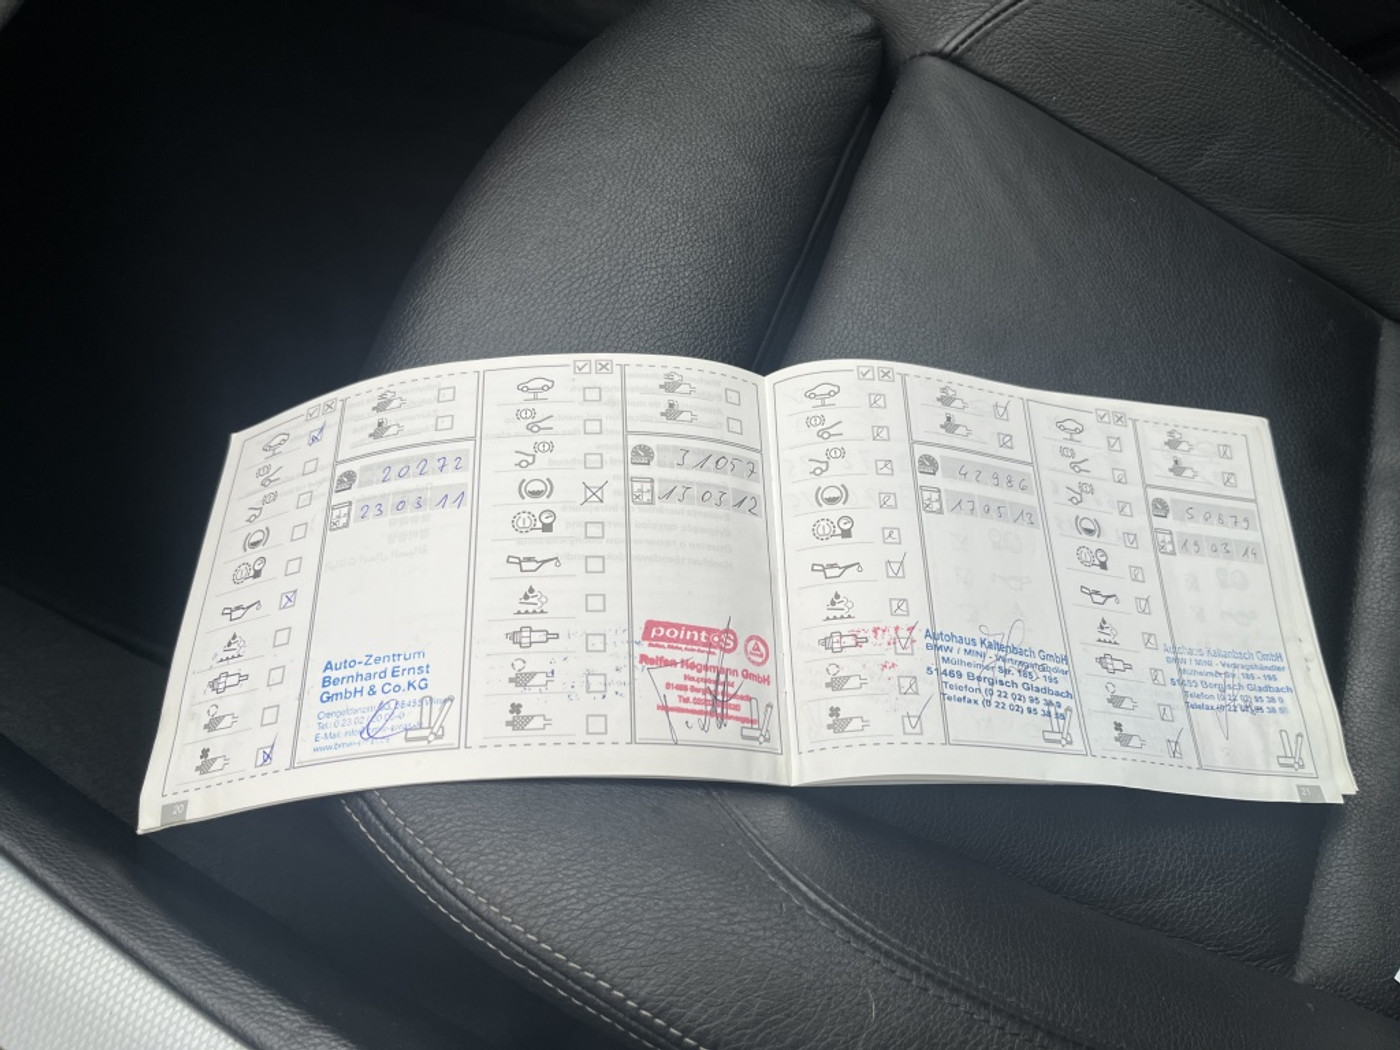 20272
23 03 11
Auto-Zentrum
Bernhard Ernst
GmbH & Co.KG
20
31057
13 03 12
point S
Reifen Hegemann GmbH
42986
17 05 13
Autohaus Kaltenbach GmbH
BMW / MINI - Vertragshändler
Mülheimer Str. 185 - 195
51469 Bergisch Gladbach
Telefon (0 22 02) 95 38 0
Telefax (0 22 02) 95 38
50879
19 03 14
Autohaus Kaltenbach GmbH
BMW / MINI - Vertragshändler
Mülheimer Str. 185 - 195
Bergisch Gladbach
Telefon (0 22 02) 95 38 0
Telefax (0 22 02) 95 38
21